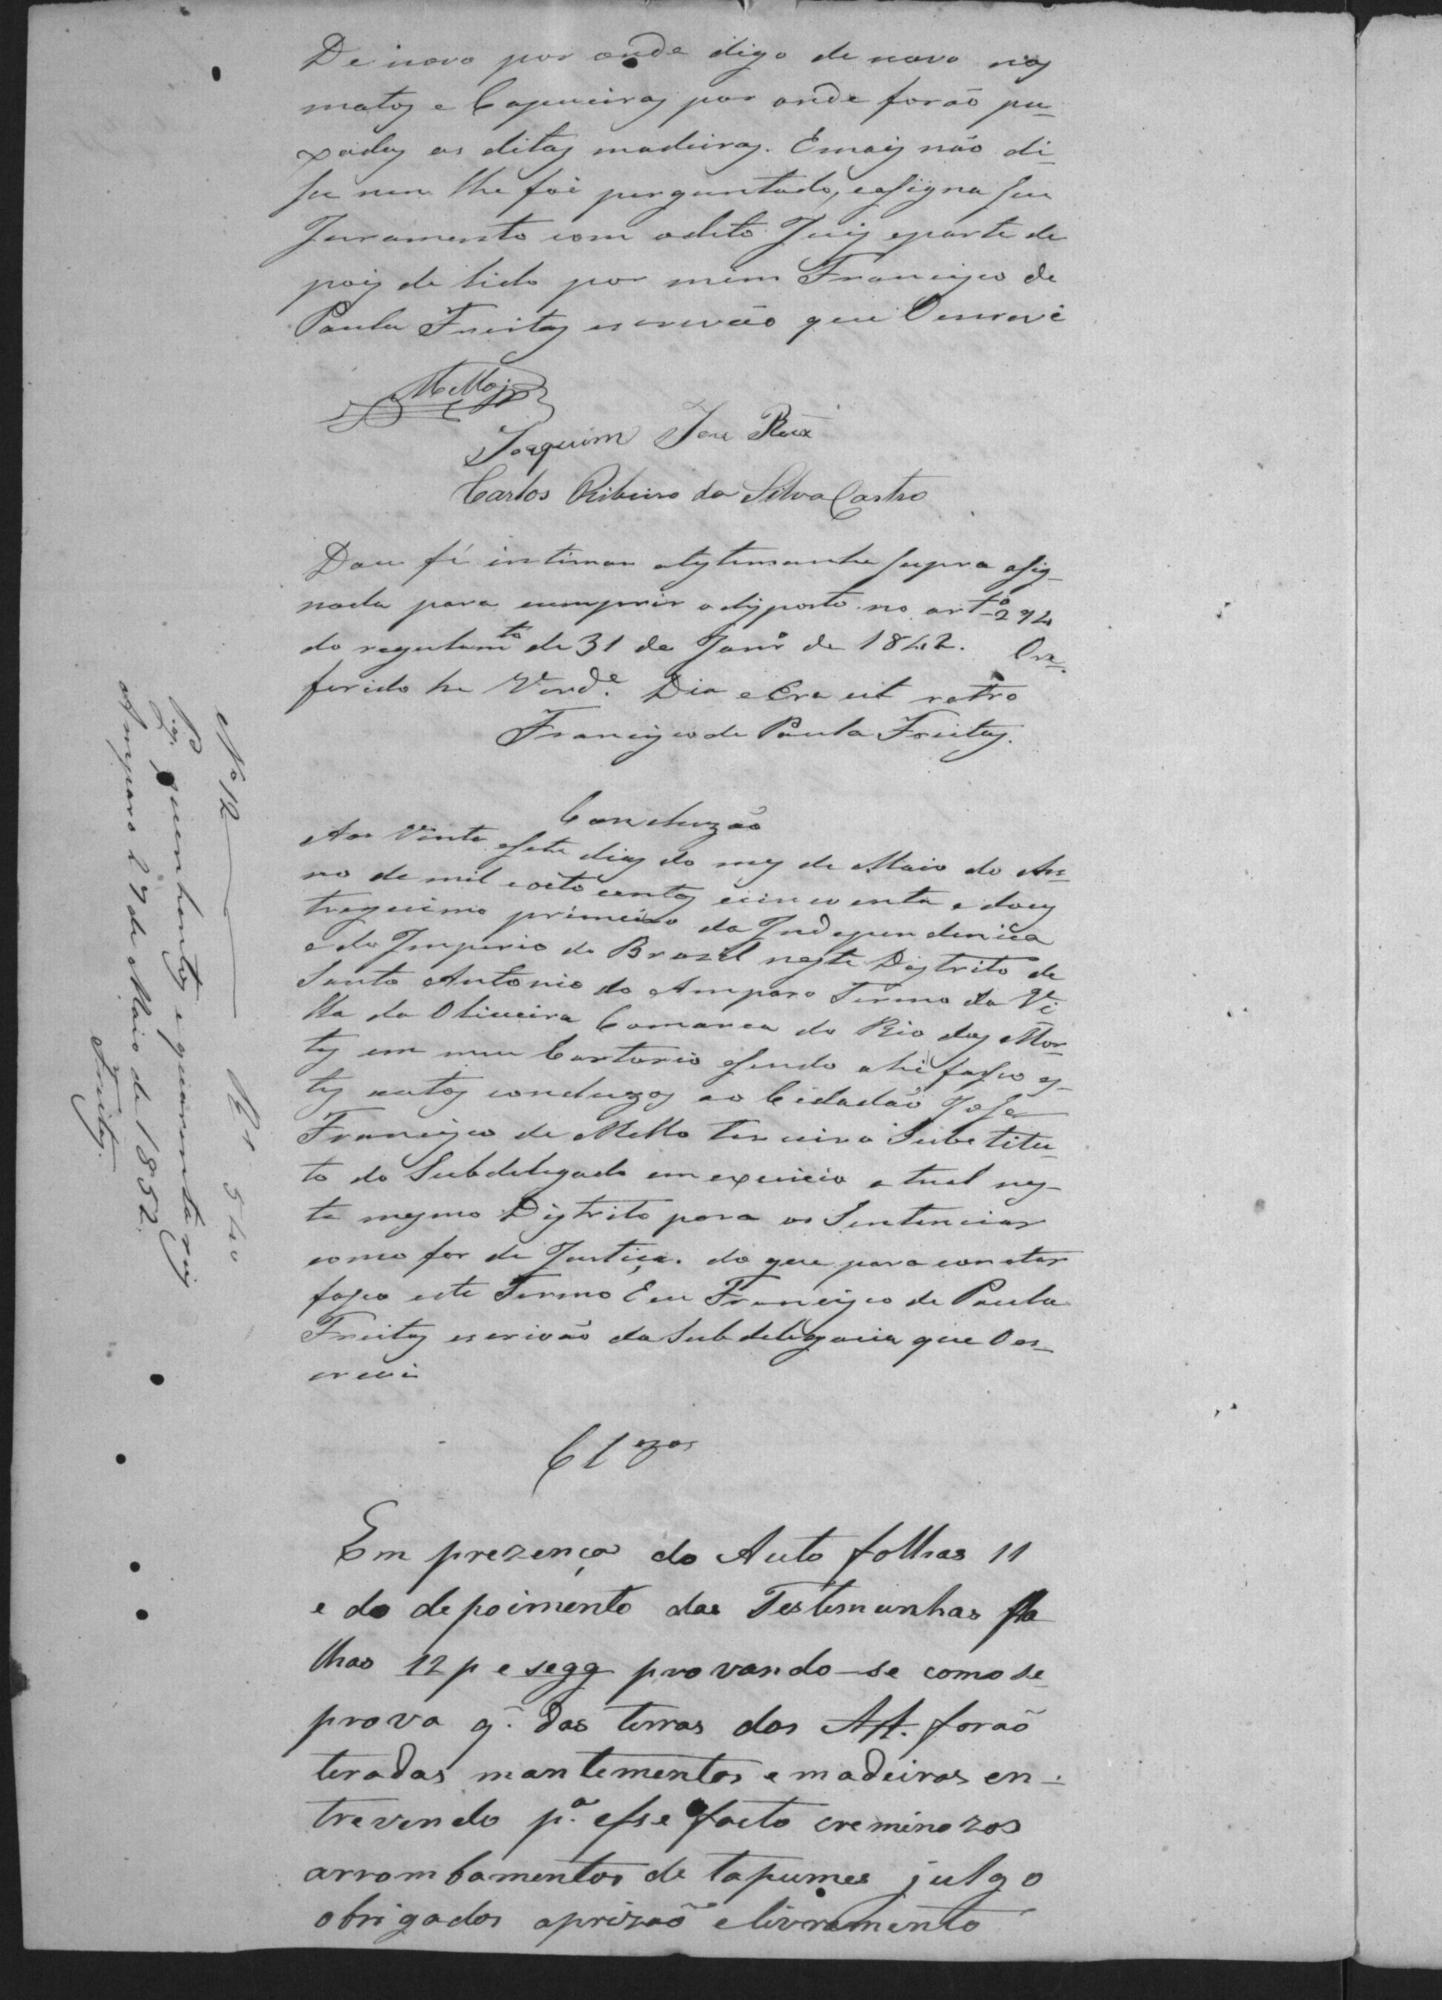 De novo por onde digo de novo nos
matos e Capueiras por onde forão pu-
xadas as ditas madeiras. Emais não di-
sse nem lhe foi perguntado, easigna seu
Juramento com odito Juis eparte de
pois de lido por mim Francisco de
Paula Freitas escrivão que Oescrevi
Mello
Joaquim Jose
Carlos Ribeiro da Silva Castro
Dou fé intimar atestemunha supra asig-
nada para cumprir odisposto no artº 294
do regulamto de 31 de Janrº de 1842. Ore-
ferido he Verde. Dia eEra ut retro
Francisco de Paula Freitas.
Concluzão
Aos Vinte esete dias do mes de Maio do An-
no de mil eoito centos ecincoenta e dous
tregecimo primeiro da Independencia
e do Imperio do Brazil neste Destrito de
Santo Antonio do Amparo Termo da Vi
lla da Oliveira Comarca do Rio das Mor-
tes em meu Cartorio esendo ahi fasso es-
tes autos concluzos ao Cidadão José
Francisco de Mello terceiro Substitu-
to do Subdelegado em exercicio atual nes-
te mesmo Distrito para os Sentenciar
como for de Justiça. do que para constar
fasso este Termo Eeu Francisco de Paula
Freitas escrivão da Subdelegacia que Oes-
crevi
Clzos
Em prezença do Auto folhas 11
e do depoimento das Testemunhas fo
lhas 12 p e segg provando-se como se
prova q. das terras dos AA. forão
teradas mantementos e madeiras en-
trevendo p.a esse facto creminozos
arrombamentos de tapumes julgo
obrigados aprizão elivramento
No 12 Rs 540
Pg. quenhentos e quarenta reis
Amparo 27 de Maio de 1852.
Freitas.